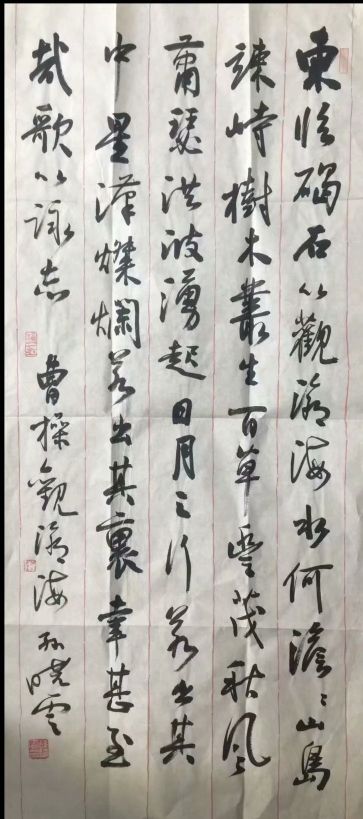 東临碣石以觀滄海水何澹々山島
竦峙樹木叢生百草豐茂秋風
蕭瑟洪波湧起日月之行若出其
中星漢燦爛若出其裏幸甚至
哉歌以詠志 曹操觀滄海 孙晓雲